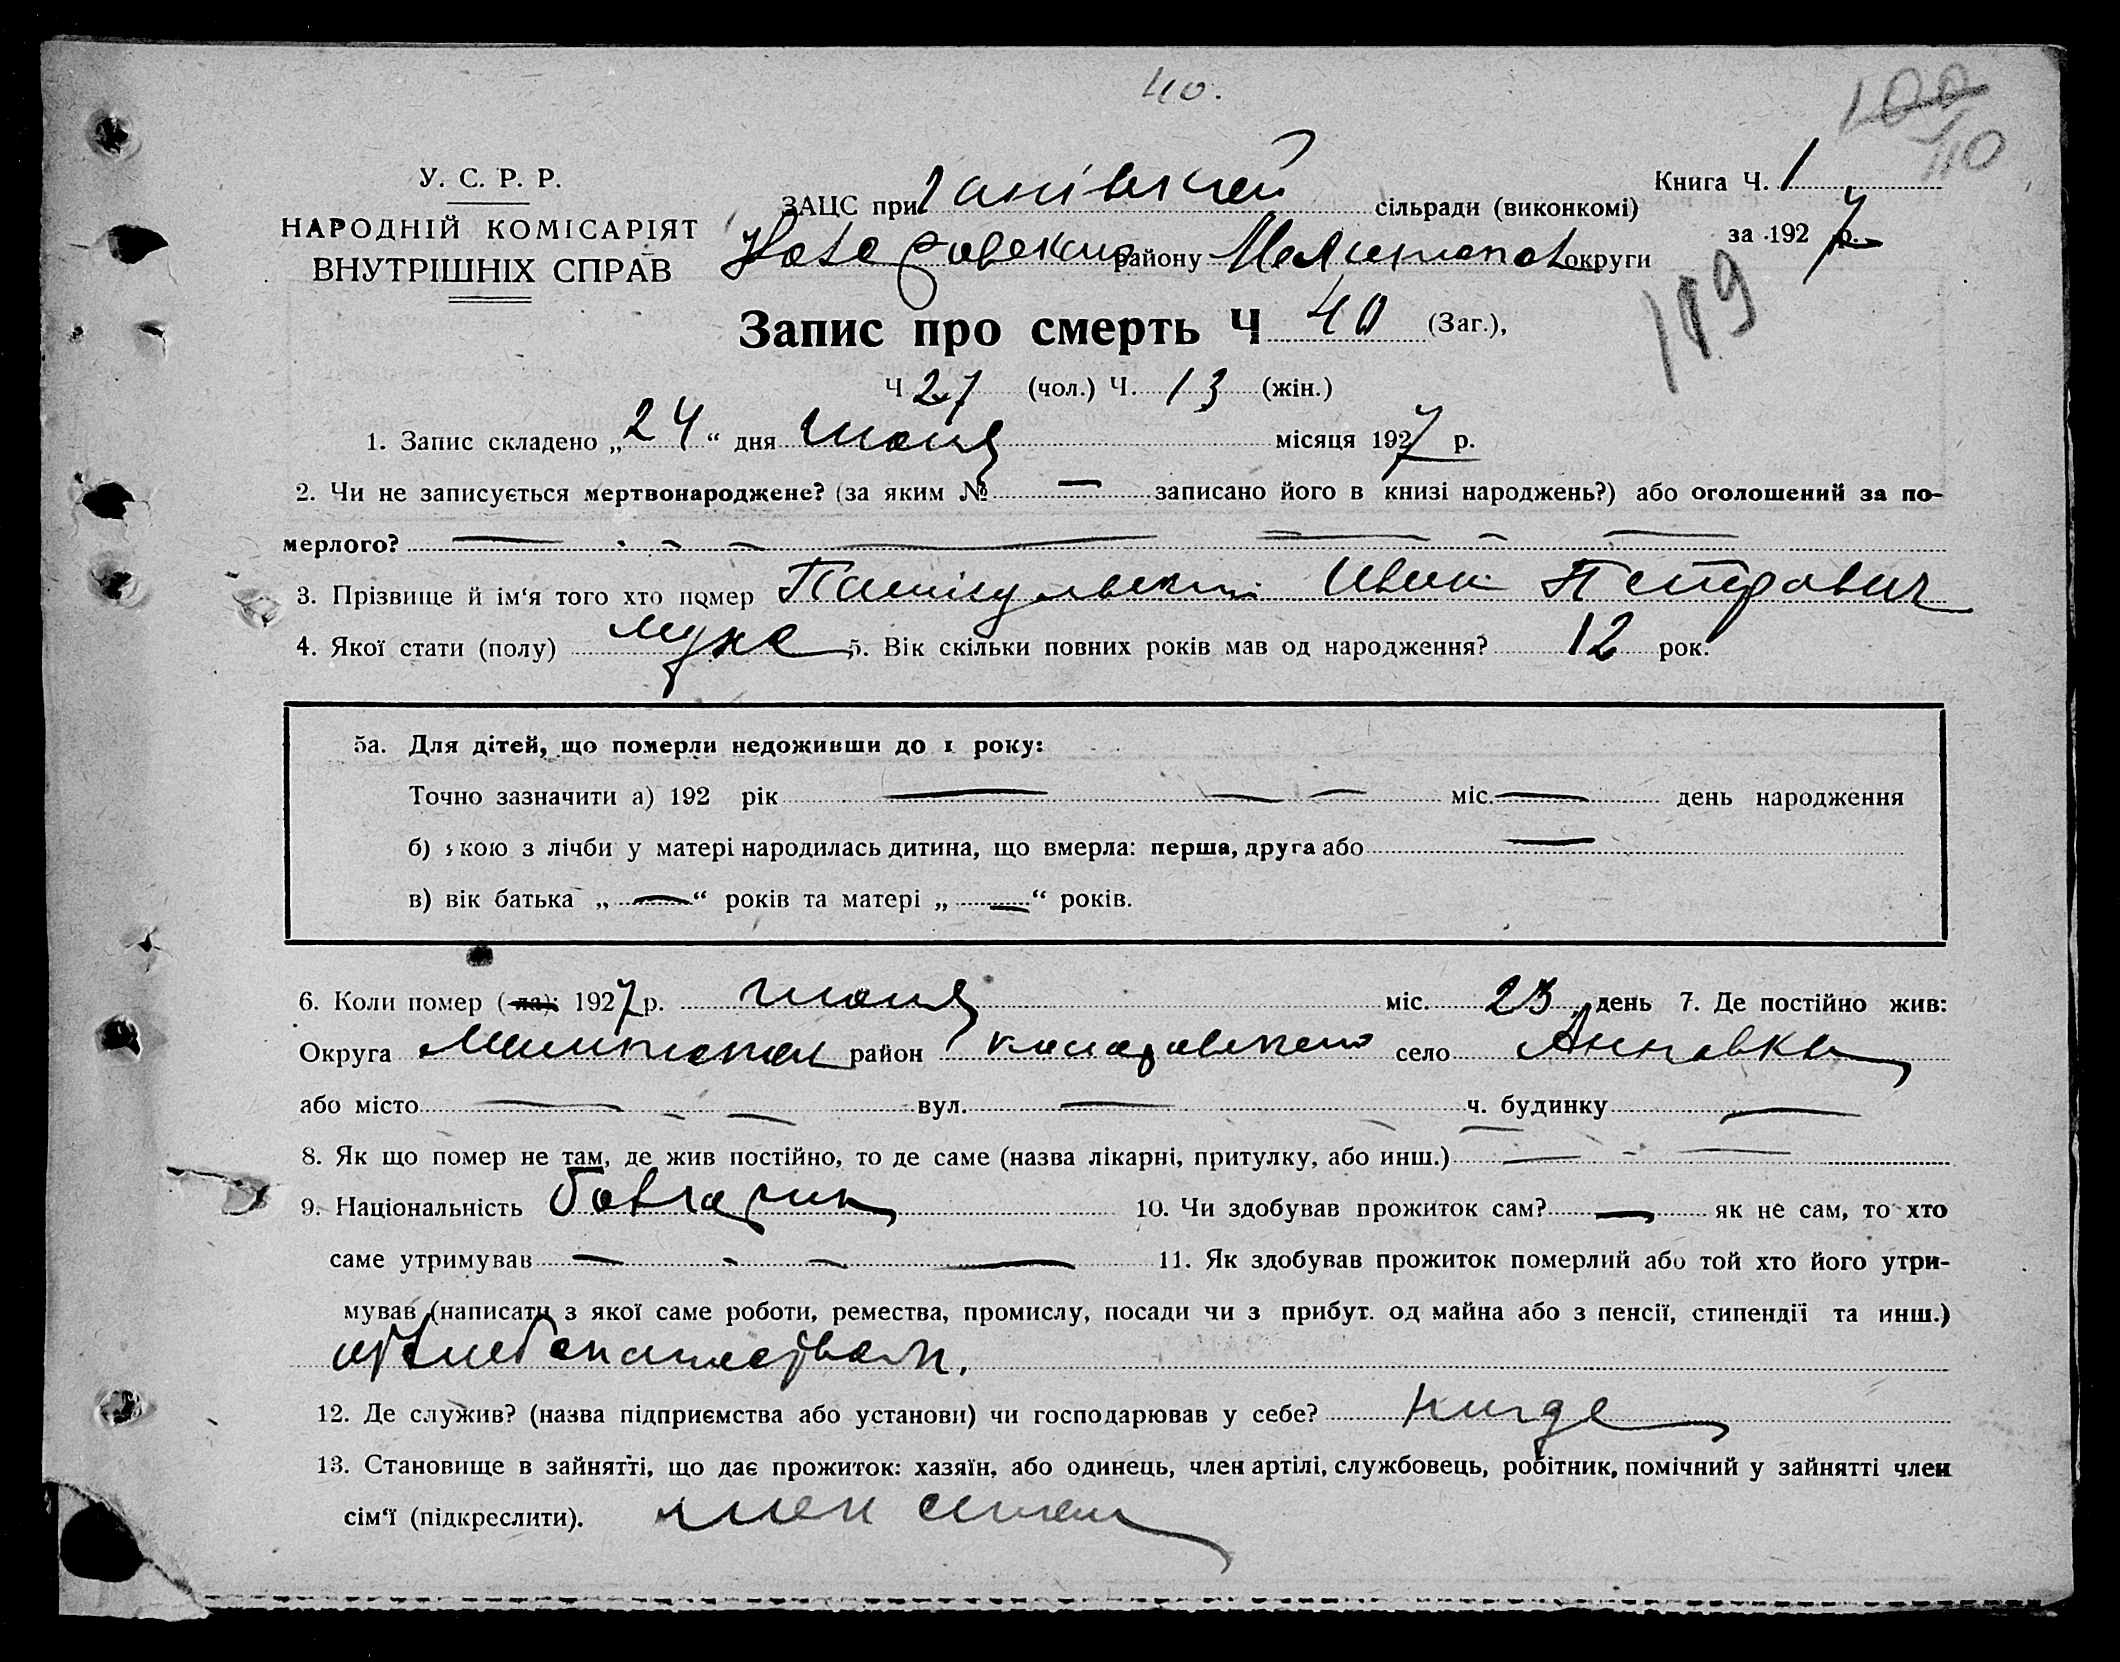 40.
100
110
У. С. Р. Р.
НАРОДНІЙ КОМІСАРІЯТ
ВНУТРІШНІХ СПРАВ
ЗАЦС при Ганівській сільради (виконкомі)
Книга Ч. 1
району Мелитопол округи
за 1927 р.
119
Запис про смерть Ч 40 (Заг.),
Ч 27 (чол.) Ч. 13 (жін.)
1. Запис складено „24“ дня июня місяця 1927 р.
2. Чи не записується мертвонароджене? (за яким № — записано його в книзі народжень?) або оголошений за по-
мерлого? —
3. Прізвище й ім‘я того хто помер Иван Петрович
4. Якої стати (полу) муж 5. Вік скільки повних років мав од народження? 12 рок.
5а. Для дітей, що померли недоживши до 1 року:
Точно зазначити а) 192 рік — міс. — день народження
б) якою з лічби у матері народилась дитина, що вмерла: перша, друга або —
в) вік батька „—“ років та матері „—“ років.
6. Коли помер (ла): 1927 р. июня міс. 23 день 7. Де постійно жив:
Округа Мелитопол район село Анновка
або місто — вул. — ч. будинку —
8. Як що помер не там, де жив постійно, то де саме (назва лікарні, притулку, або инш.) —
9. Національність болгарин 10. Чи здобував прожиток сам? — як не сам, то хто
саме утримував — 11. Як здобував прожиток померлий або той хто його утри-
мував (написати з якої саме роботи, ремества, промислу, посади чи з прибут. од майна або з пенсії, стипендії та инш.)
хлебопашеством.
12. Де служив? (назва підприємства або установи) чи господарював у себе? нигде
13. Становище в зайнятті, що дає прожиток: хазяїн, або одинець, член артілі, службовець, робітник, помічний у зайнятті член
сім‘ї (підкреслити). член семьи